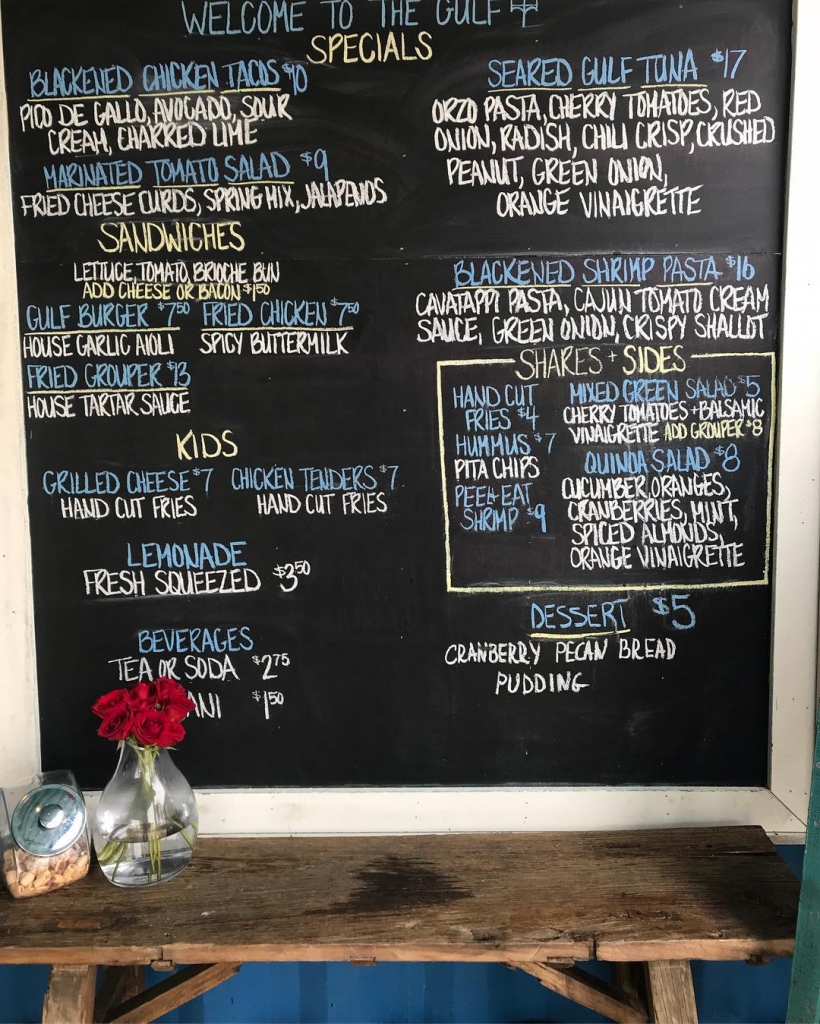 WELCOME TO THE GULF
SPECIALS
BLACKENED CHICKEN TACOS $10
PICO DE GALLO, AVOCADO, SOUR
CREAM, CHARRED LIME
MARINATED TOMATO SALAD $9
FRIED CHEESE CURDS, SPRING MIX, JALAPENOS
SANDWICHES
LETTUCE, TOMATO, BRIOCHE BUN
ADD CHEESE OR BACON $1.50
GULF BURGER $7.50 FRIED CHICKEN $7.50
HOUSE GARLIC AIOLI SPICY BUTTERMILK
FRIED GROUPER $13
HOUSE TARTAR SAUCE
KIDS
GRILLED CHEESE $7 CHICKEN TENDERS $7
HAND CUT FRIES HAND CUT FRIES
LEMONADE
FRESH SQUEEZED $3.50
BEVERAGES
TEA OR SODA $2.75
ANI $1.50
SEARED GULF TUNA $17
ORZO PASTA, CHERRY TOMATOES, RED
ONION, RADISH, CHILI CRISP, CRUSHED
PEANUT, GREEN ONION,
ORANGE VINAIGRETTE
BLACKENED SHRIMP PASTA $16
CAVATAPPI PASTA, CAJUN TOMATO CREAM
SAUCE, GREEN ONION, CRISPY SHALLOT
SHARES + SIDES
HAND CUT
FRIES $4
HUMMUS $7
PITA CHIPS
PEEL+EAT
SHRIMP $9
MIXED GREEN SALAD $5
CHERRY TOMATOES + BALSAMIC
VINAIGRETTE ADD GROUPER $8
QUINOA SALAD $8
CUCUMBER, ORANGES,
CRANBERRIES, MINT,
SPICED ALMONDS,
ORANGE VINAIGRETTE
DESSERT $5
CRANBERRY PECAN BREAD
PUDDING